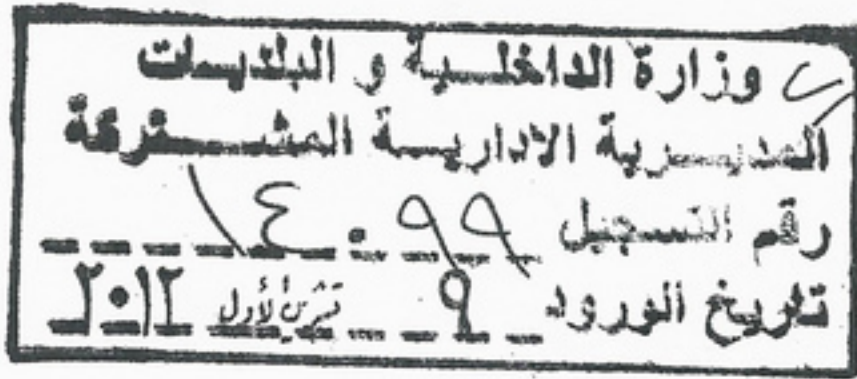 وزارة الداخلية و البلديات
المديرية الادارية المشتركة
رقم التسجيل ١٤٠٩٩
تاريخ الورود ٩ تشرين الأول ٢٠١٢